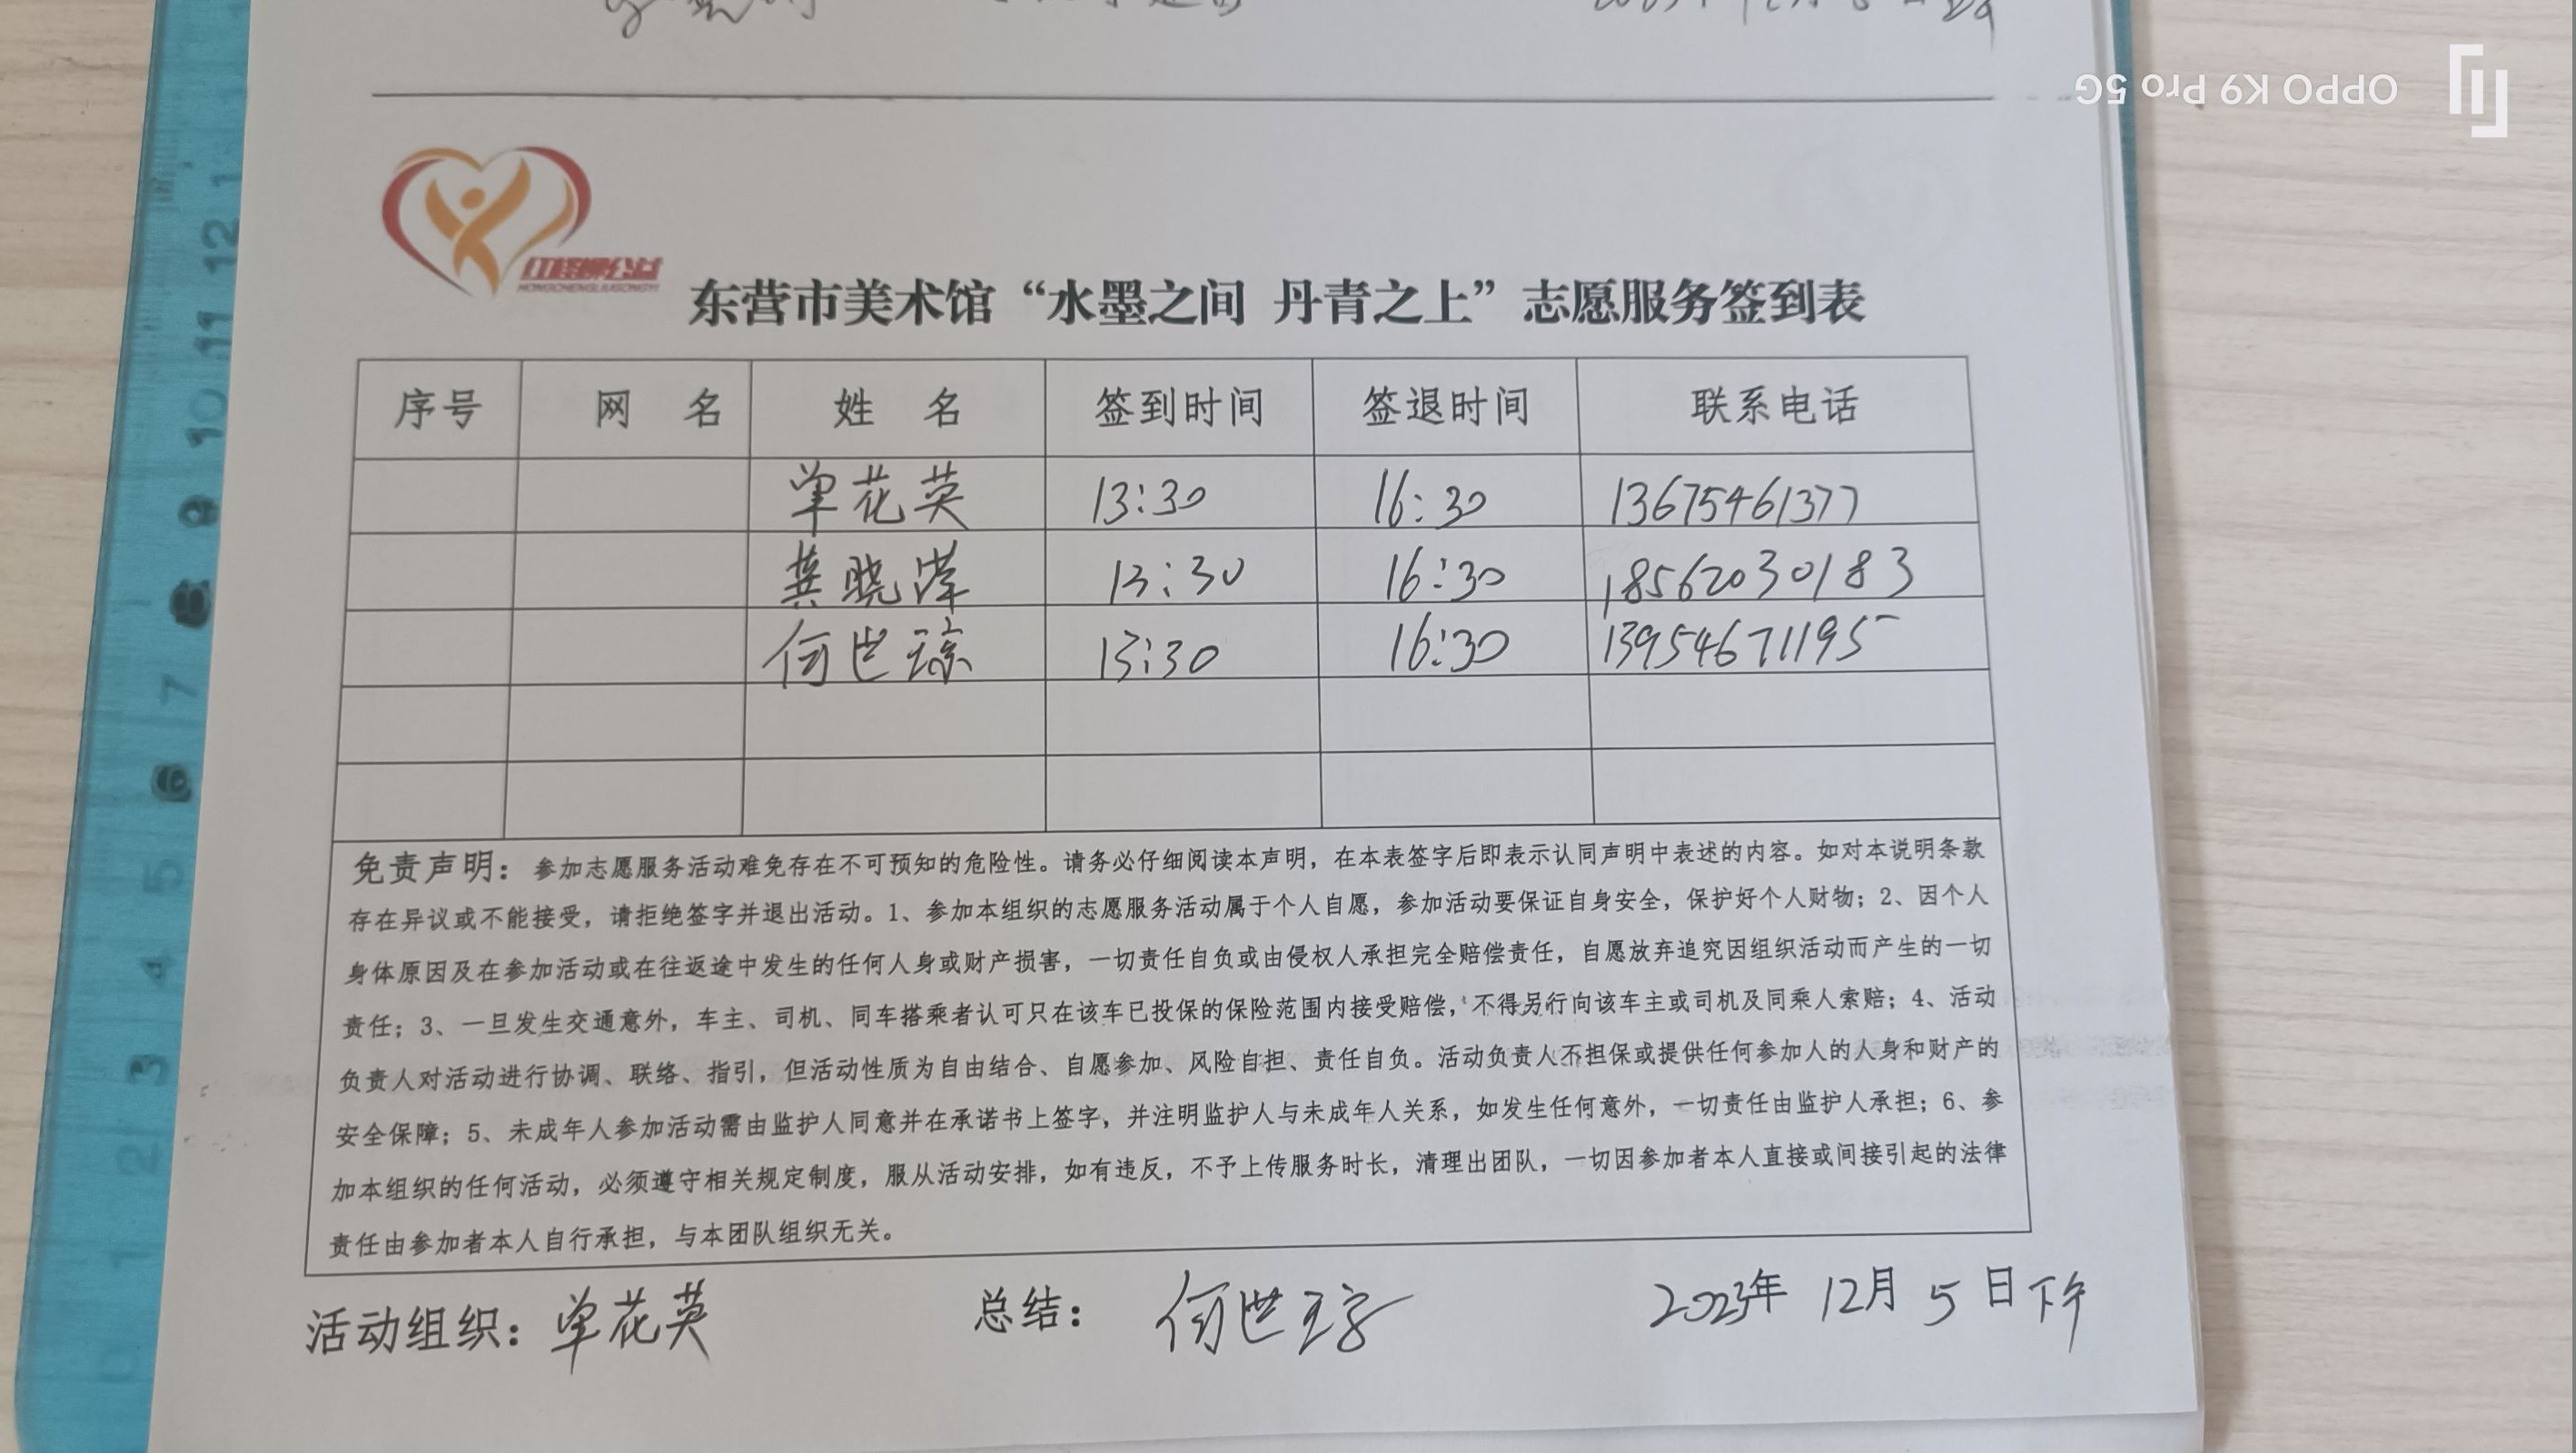 OPPO K9 Pro 5G
红柽柳公益
HONGCHENGLIUGONGYI
东营市美术馆“水墨之间 丹青之上”志愿服务签到表
序号 网 名 姓 名 签到时间 签退时间 联系电话
单花英 13:30 16:30 13675461377
龚晓萍 13:30 16:30 18562030183
何世琼 13:30 16:30 13954671195
免责声明：参加志愿服务活动难免存在不可预知的危险性。请务必仔细阅读本声明，在本表签字后即表示认同声明中表述的内容。如对本说明条款
存在异议或不能接受，请拒绝签字并退出活动。1、参加本组织的志愿服务活动属于个人自愿，参加活动要保证自身安全，保护好个人财物；2、因个人
身体原因及在参加活动或在往返途中发生的任何人身或财产损害，一切责任自负或由侵权人承担完全赔偿责任，自愿放弃追究因组织活动而产生的一切
责任；3、一旦发生交通意外，车主、司机、同车搭乘者认可只在该车已投保的保险范围内接受赔偿，不得另行向该车主或司机及同乘人索赔；4、活动
负责人对活动进行协调、联络、指引，但活动性质为自由结合、自愿参加、风险自担、责任自负。活动负责人不担保或提供任何参加人的人身和财产的
安全保障；5、未成年人参加活动需由监护人同意并在承诺书上签字，并注明监护人与未成年人关系，如发生任何意外，一切责任由监护人承担；6、参
加本组织的任何活动，必须遵守相关规定制度，服从活动安排，如有违反，不予上传服务时长，清理出团队，一切因参加者本人直接或间接引起的法律
责任由参加者本人自行承担，与本团队组织无关。
活动组织：单花英 总结：何世琼 2023年 12月 5日下午
12
11
10
9
8
7
6
5
4
3
2
1
0